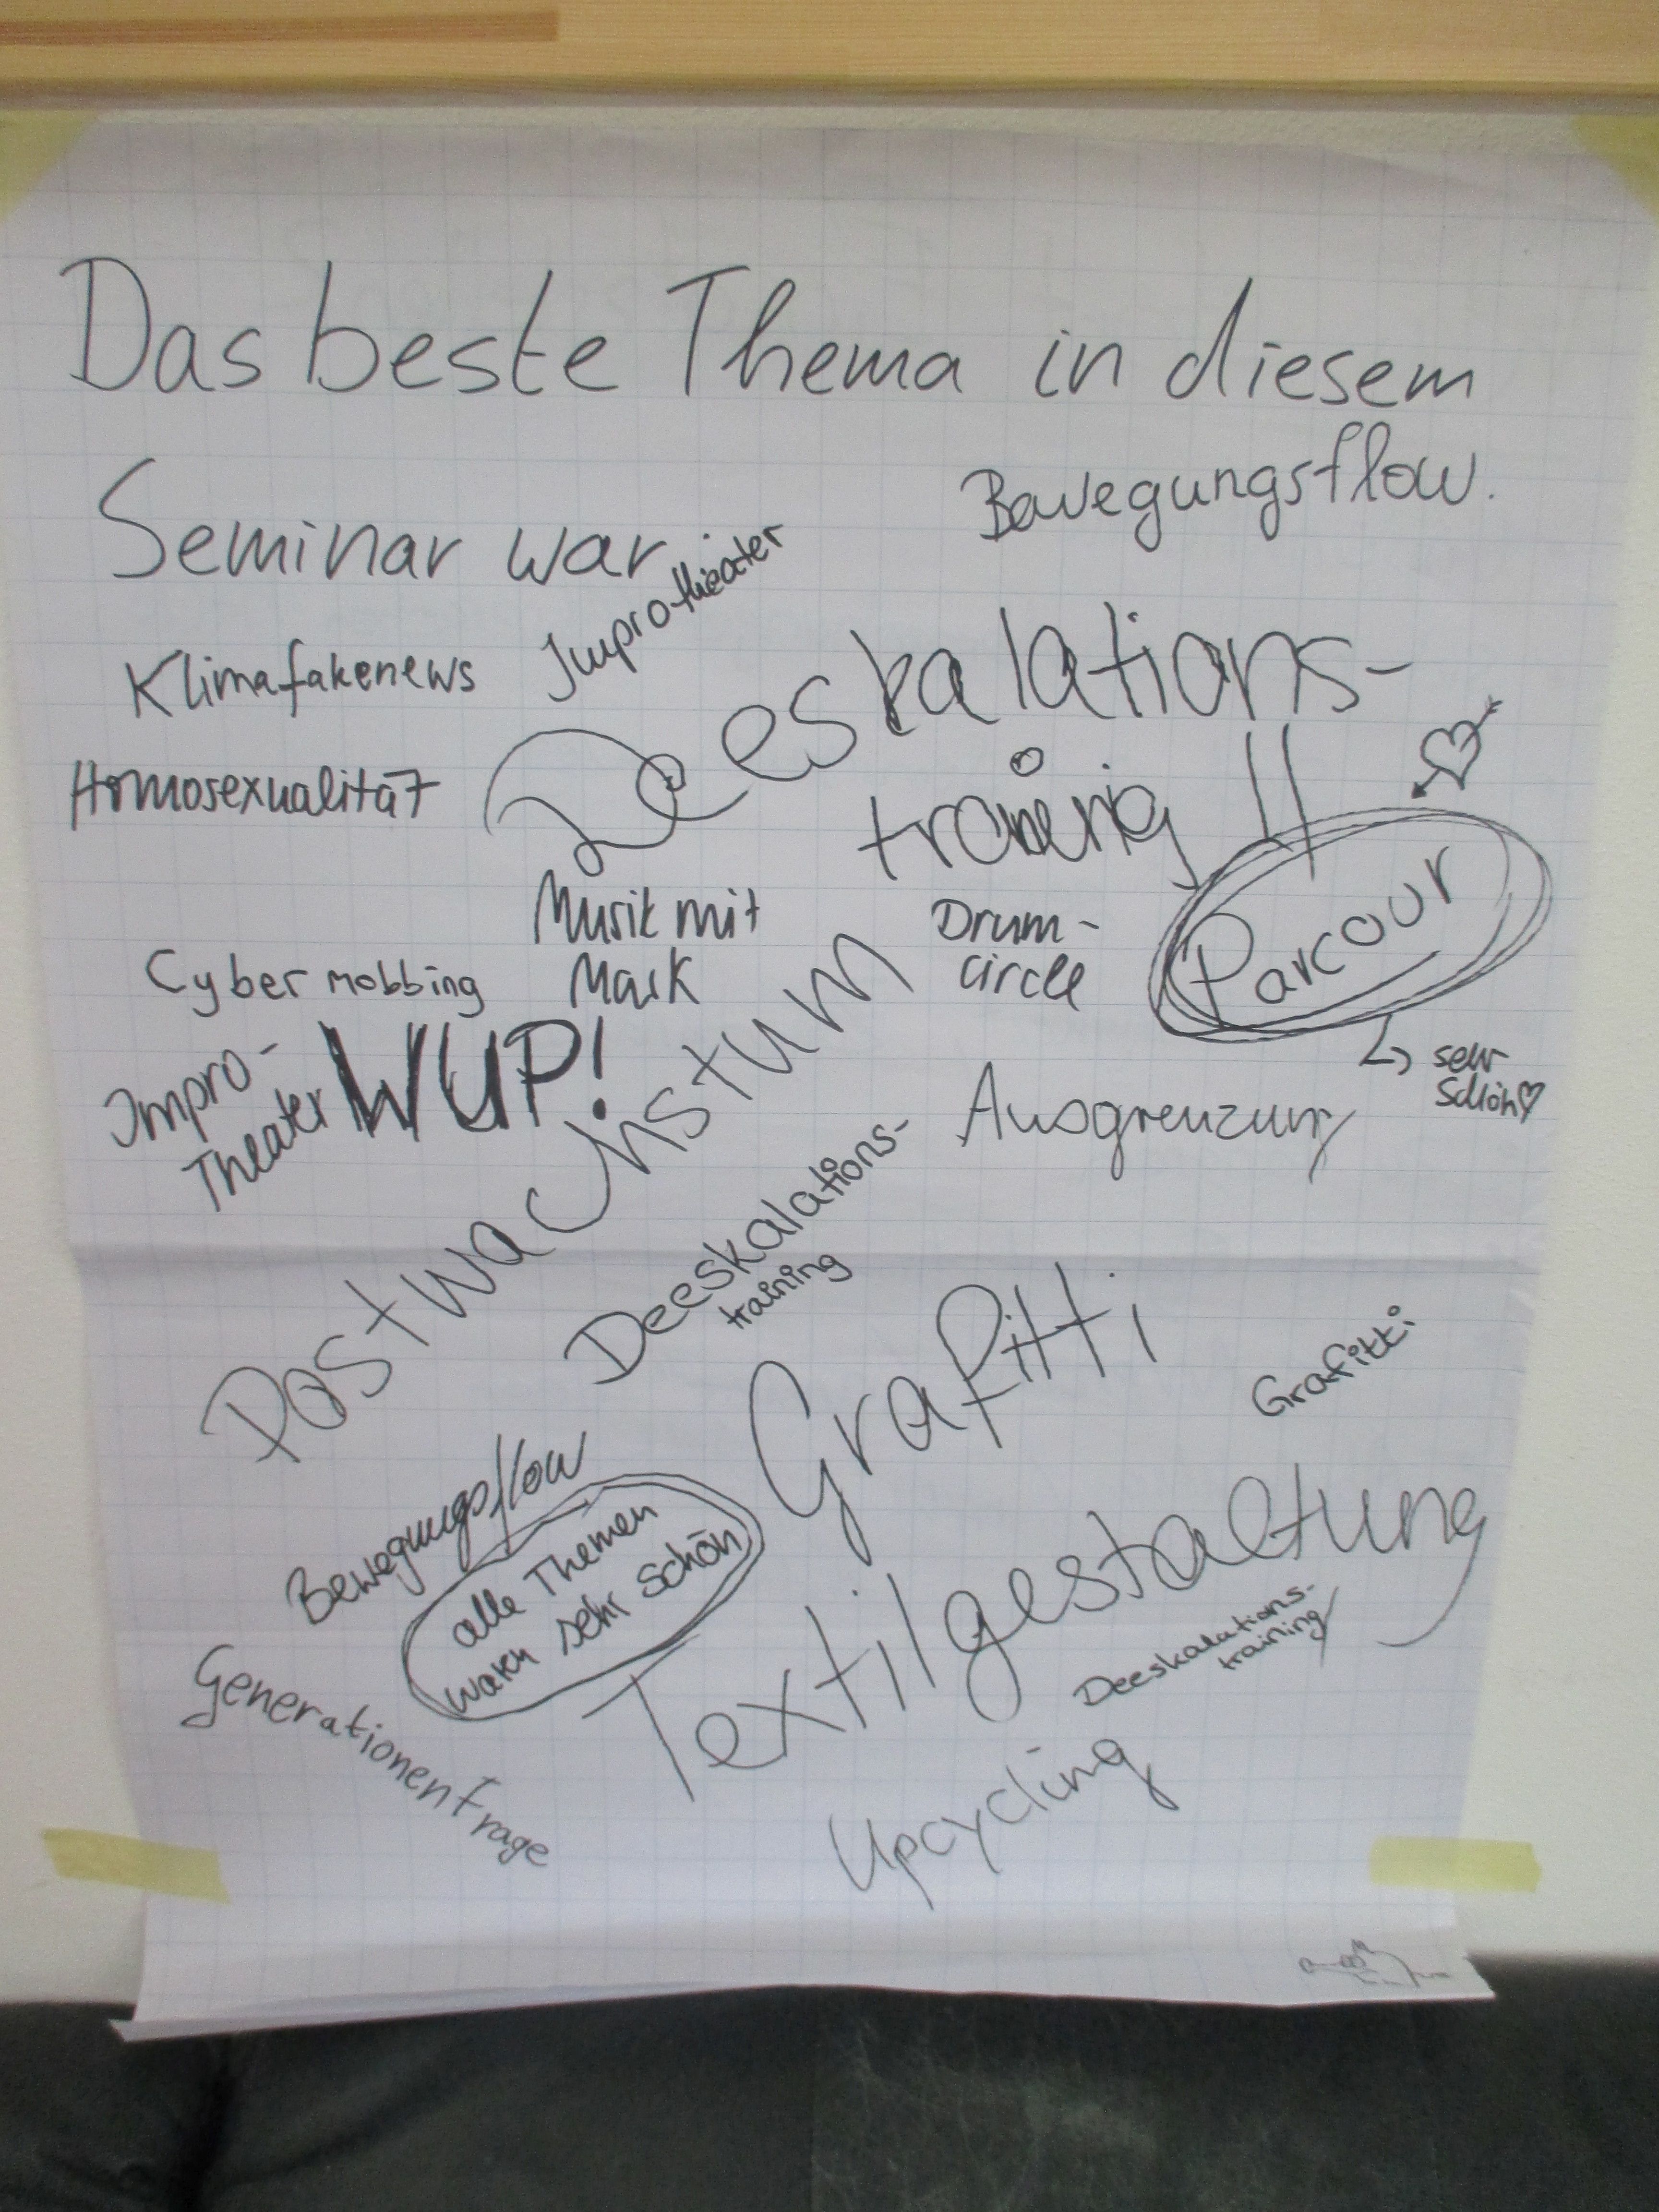 Das beste Thema in diesem
Seminar war
Bewegungsflow.
Improtheater
Klimafakenews
Deeskalations-
training !!
Homosexualität
Musik mit
Mark
Drum-
circle
Parcour
sehr
schön
Cyber mobbing
Impro-
Theater
WUP!
Postwachstum
Ausgrenzung
Deeskalations-
training
Grafitti
Grafitti
Bewegungsflow
alle Themen
waren sehr schön
Textilgestaltung
Deeskalations-
training
Generationenfrage
Upcycling